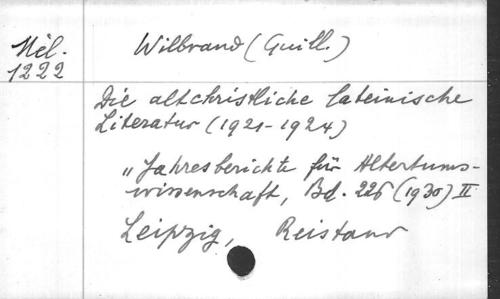 Mél.
1222
Wilbrand (Guill.)
Die altchristliche lateinische
Literatur (1921-1924)
"Jahresberichte für Altertums-
wissenschaft, Bd. 226 (1930) II
Leipzig, Reisland